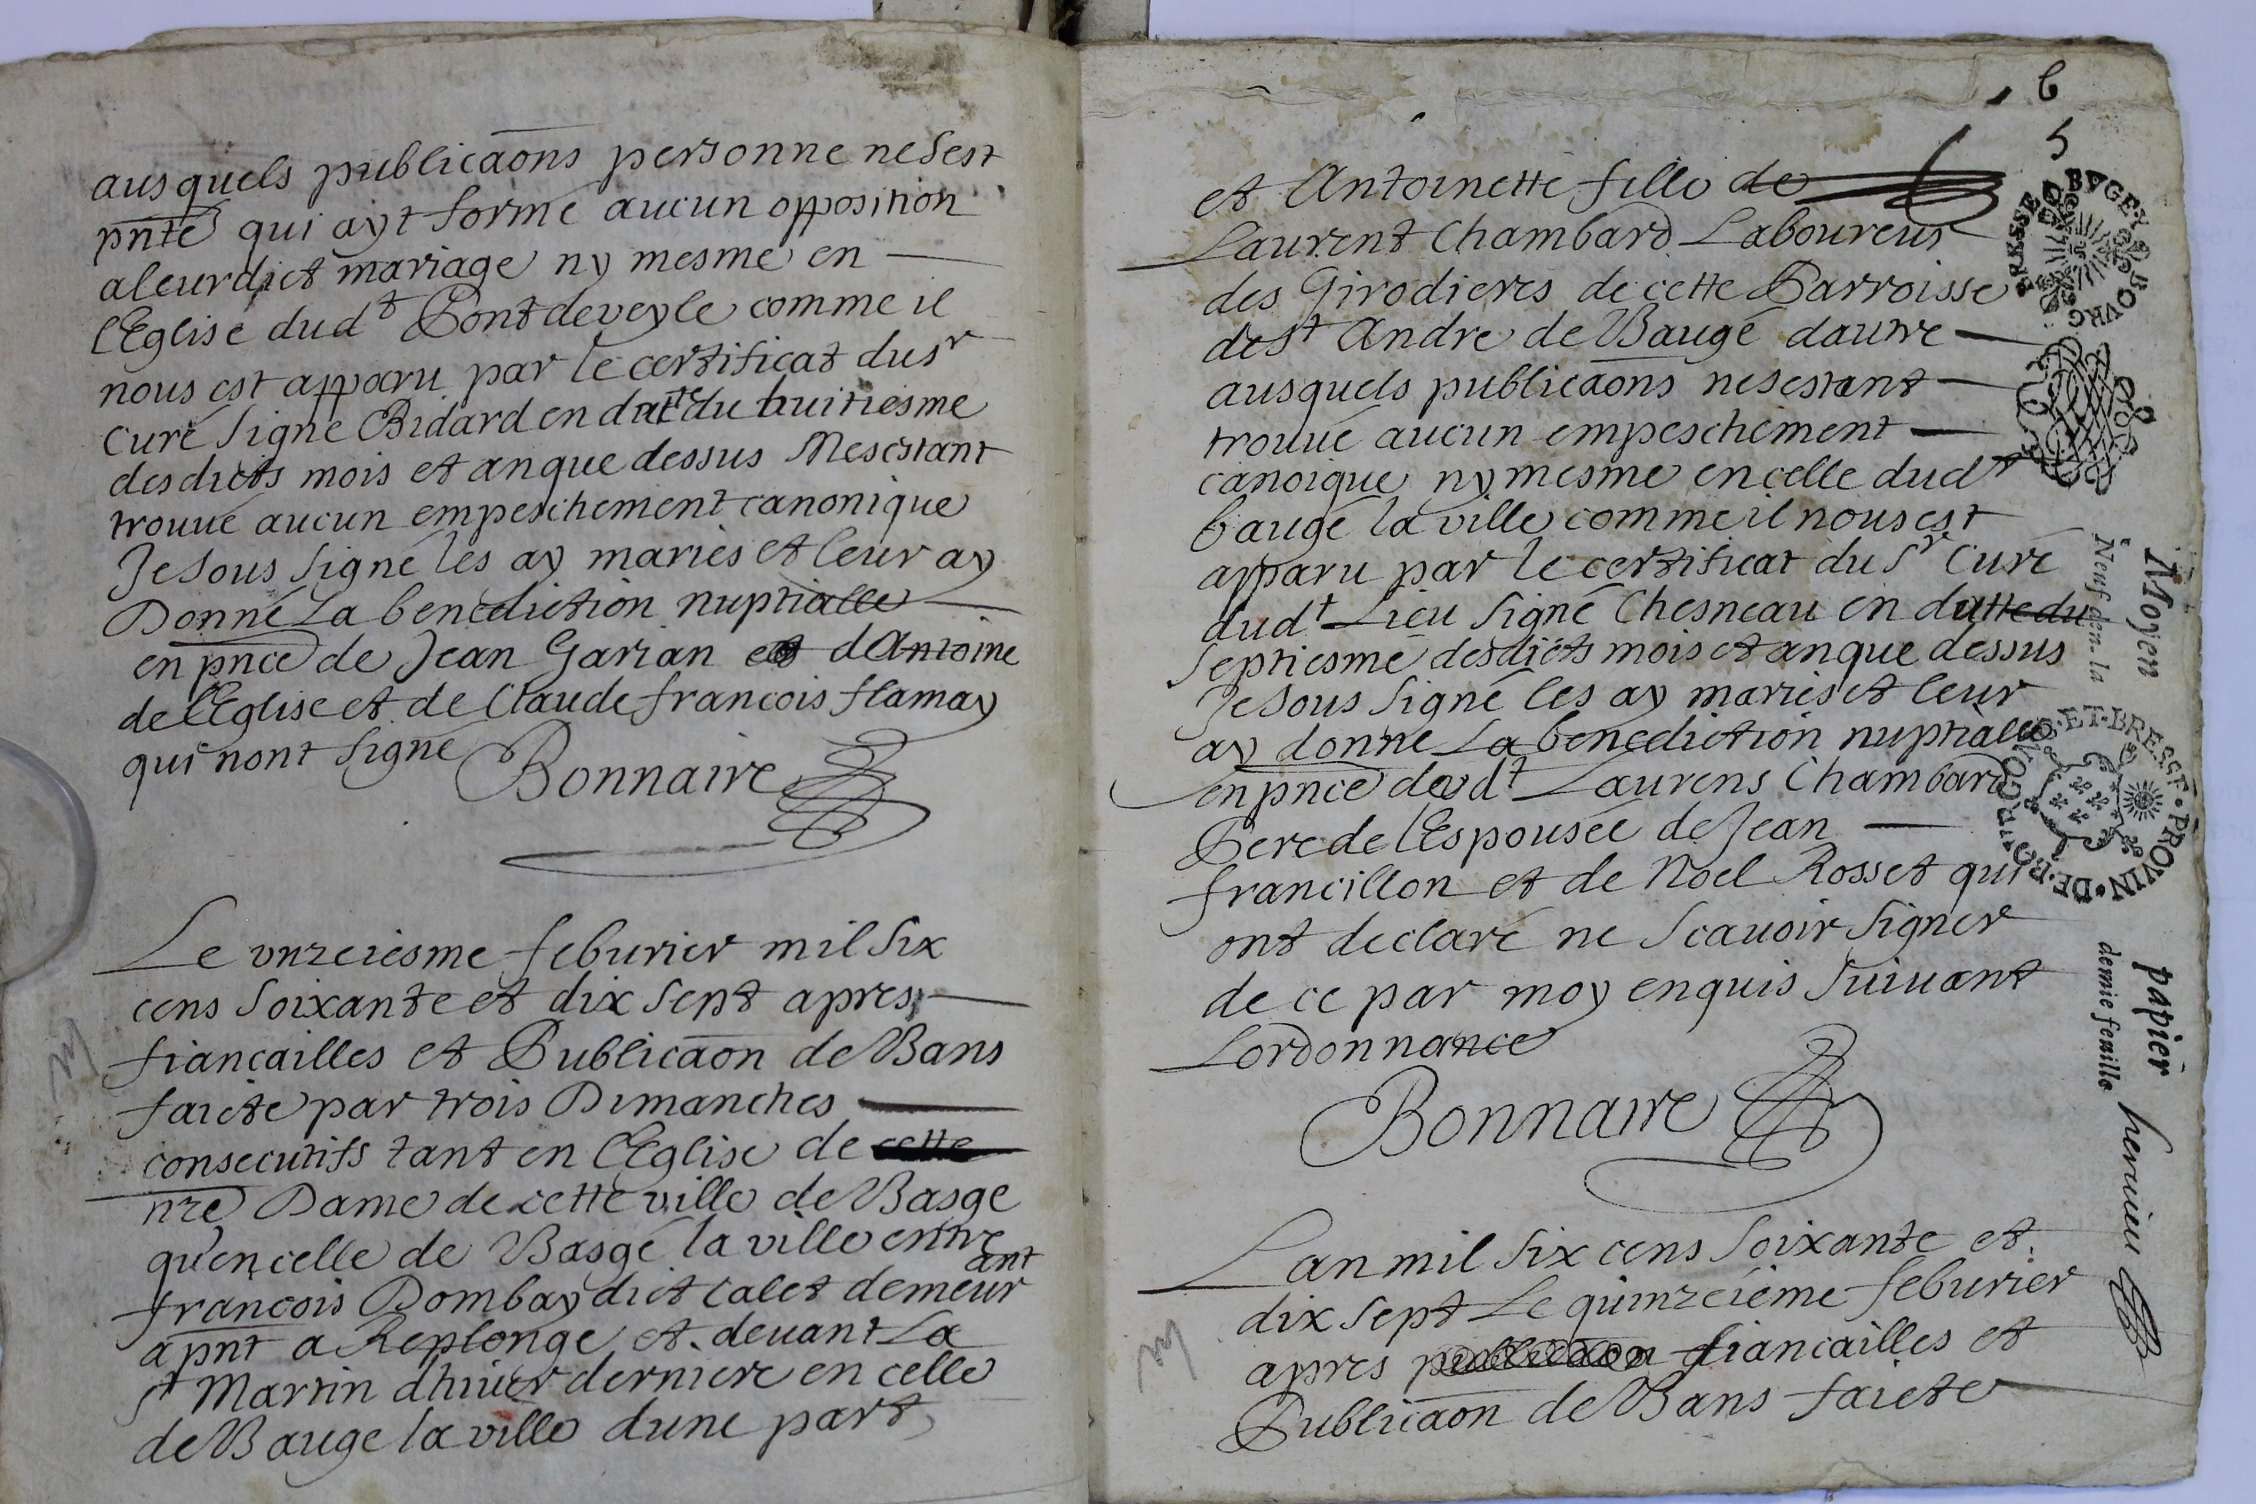 ausquels publicãons personne nesest
pnte qui ayt formé aucun opposition
aleurdict mariage ny mesme en
lEglise dudt Pontdeveyle comme il
nous est apparu par le certificat dusr
Curé signe Bidard en datte du huitiesme
desdicts mois et anque dessus Nesestant
trouué aucun empeschement canonique
Je sous signé les ay mariés et leur ay
Donné La benediction nuptialle
en pnce de Jean Garian et dAntoine
de lEglise et de Claude francois flamay
qui nont signé Bonnaire
Le vnzeiesme feburier mil six
cens soixante et dix sept apres
fiancailles et Publicãon de Bans
faicte par trois Dimanches
consecutifs tant en lEglise de cette
nre Dame de cette ville de Basge
quen celle de Basgé la ville entre
francois Dombay dict Calet demeurant
apnt a Replonge et devant La
st Martin dhiuer derniere en celle
de Bauge la ville dune part
6
5
et Antoinette fille de
Laurent Chambard Laboureur
des Girodieres de cette Parroisse
de st Andre de Baugé dautre
ausquels publicãons nesestant
trouué aucun empeschement
canoique ny mesme en celle dudt
baugé la ville comme il nous est
apparu par le certificat du sr Curé
dudt Lieu signé Chesneau en datte du
septiesme desdicts mois et anque dessus
Je sous signé les ay mariés et leur
ay donné La benediction nuptialle
en pnce dudt Laurens Chambard
Pere de lEspousée de Jean
francillon et de Noel Rosset qui
ont declaré ne scauoir signer
de ce par moy enquis suiuant
Lordonnance
Bonnaire
Lan mil six cens soixante et
dix sept Le quinzeiéme feburier
apres publicãon fiancailles et
Publicãon de Bans faicte
BRESSE BVGEY BOVRG
Moyen papier
Neuf den. la demie feuille
DE·BOVRGONG·ET·BRESSE·PROVIN·
heruieu